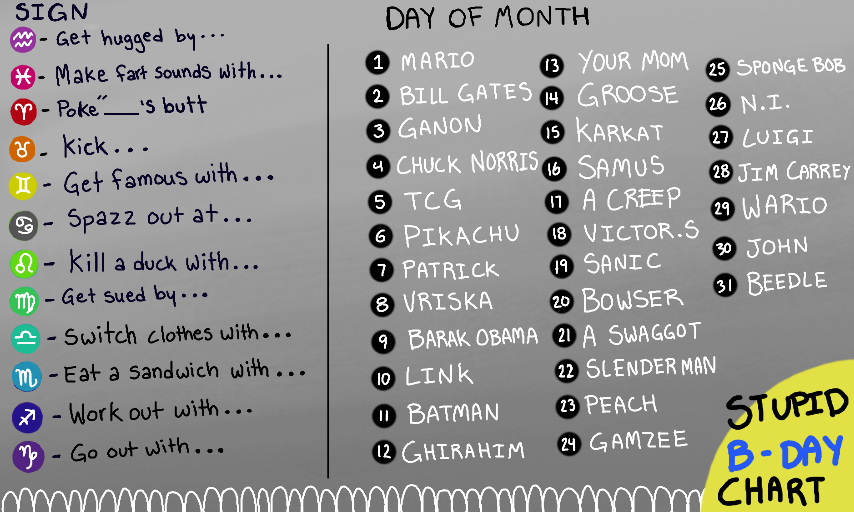 SIGN
♒ - Get hugged by...
♓ - Make fart sounds with...
♈ - Poke "___'s butt
♉ - Kick...
♊ - Get famous with...
♋ - Spazz out at...
♌ - Kill a duck with...
♍ - Get sued by...
♎ - Switch clothes with...
♏ - Eat a sandwich with...
♐ - Work out with...
♑ - Go out with...
DAY OF MONTH
1 MARIO
2 BILL GATES
3 GANON
4 CHUCK NORRIS
5 TCG
6 PIKACHU
7 PATRICK
8 VRISKA
9 BARAK OBAMA
10 LINK
11 BATMAN
12 GHIRAHIM
13 YOUR MOM
14 GROOSE
15 KARKAT
16 SAMUS
17 A CREEP
18 VICTOR.S
19 SANIC
20 BOWSER
21 A SWAGGOT
22 SLENDERMAN
23 PEACH
24 GAMZEE
25 SPONGE BOB
26 N.I.
27 LUIGI
28 JIM CARREY
29 WARIO
30 JOHN
31 BEEDLE
STUPID
B-DAY
CHART